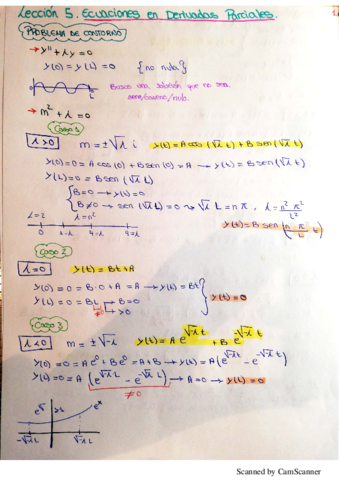 Lección 5. Ecuaciones en Derivadas Parciales.
PROBLEMA DE CONTORNO
→ y'' + λy = 0
y(0) = y(L) = 0 {no nula}
L
Busco una solución que no sea
→ m² + λ = 0
Caso 1
λ>0 m = ±√λ i y(t) = A cos(√λ t) + B sen(√λ t)
y(0) = 0 = A cos(0) + B sen(0) = A → y(t) = B sen(√λ t)
y(L) = 0 = B sen(√λ L)
B=0 → y(t)=0
B≠0 → sen(√λ L)=0 → √λ L = nπ, λ = n²π²/L²
0 π 4π 9π
y(t) = B sen(nπ/L t)
Caso 2
λ=0 y(t) = Bt + A
y(0) = 0 = B·0 + A = A → y(t) = Bt
y(L) = 0 = BL → B=0
≠0 >0
y(t)=0
Caso 3
λ<0 m = ±√-λ y(t) = A e^{√-λ t} + B e^{-√-λ t}
y(0) = 0 = A e⁰ + B e⁰ = A+B → y(t) = A(e^{√-λ t} - e^{-√-λ t})
y(L) = 0 = A(e^{√-λ L} - e^{-√-λ L}) → A=0 → y(t)=0
≠0
-√-λ L √-λ L
Scanned by CamScanner